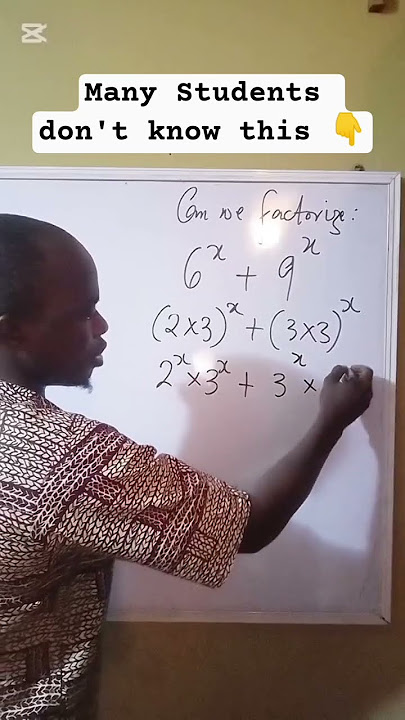 Many Students
don't know this 👇
Can we factorize:
6^x + 9^x
(2×3)^x + (3×3)^x
2^x × 3^x + 3^x ×